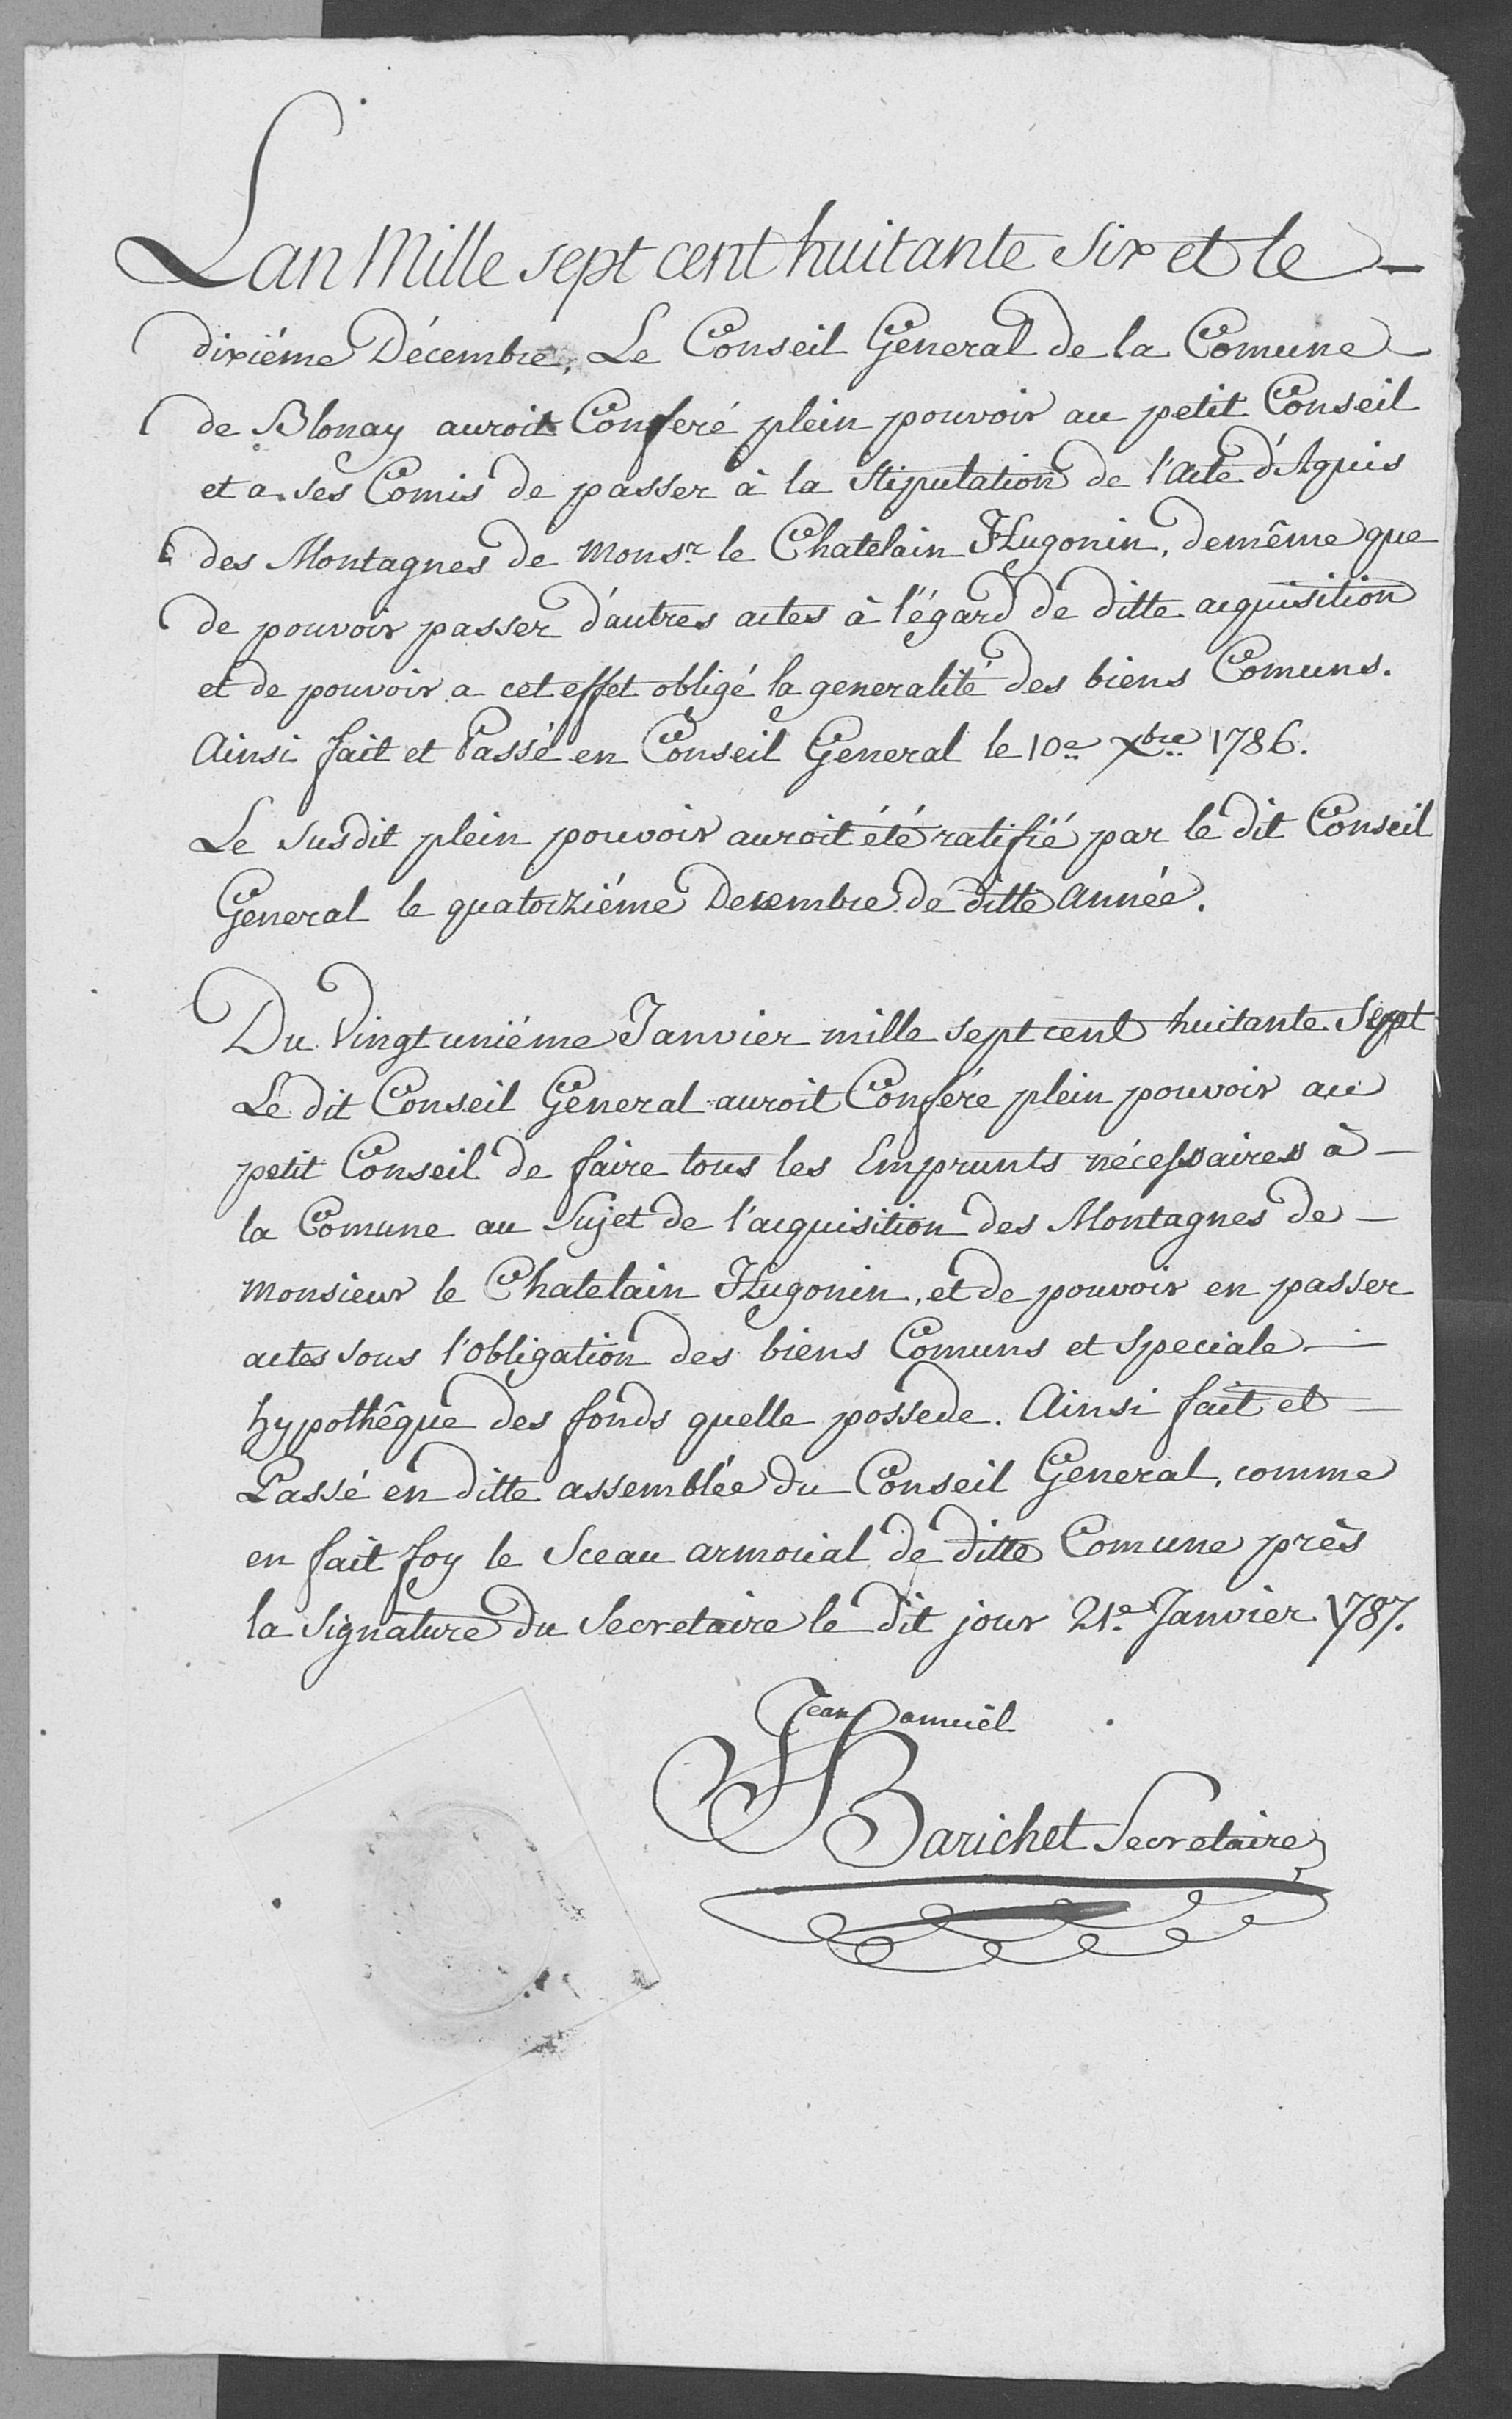 Lan Mille sept cent huitante Six et le
dixiéme Décembre, Le Conseil General de la Comune
de Blonay auroit Conferé plein pouvoir au petit Conseil
et a ses Comis de passer à la Stipulation de l'acte d'Aquis
des Montagnes de Monsr. le Chatelain Hugonin, demême que
de pouvoir passer d'autres actes à l'égard de ditte acquisition
et de pouvoir a cet effet obligé la generalité des biens Comuns.
Ainsi fait et Passé en Conseil General le 10e Xbre 1786.
Le susdit plein pouvoir auroit été ratifié par le dit Conseil
General le quatorziéme Decembre de ditte Année.
Du Vingt uniéme Janvier mille sept cent huitante Sept
Le dit Conseil General auroit Conféré plein pouvoir au
petit Conseil de faire tous les Emprunts nécessaires à
la Comune au Sujet de l'acquisition des Montagnes de
Monsieur le Chatelain Hugonin, et de pouvoir en passer
actes sous l'obligation des biens Comuns et Speciale
hypothêque des fonds quelle possede. Ainsi fait et
Passé en ditte assemblée du Conseil General, comme
en fait foy le Sceau armorial de ditte Comune près
la Signature du Secretaire le dit jour 21e Janvier 1787.
Jean Samuël
Barichet Secretaire